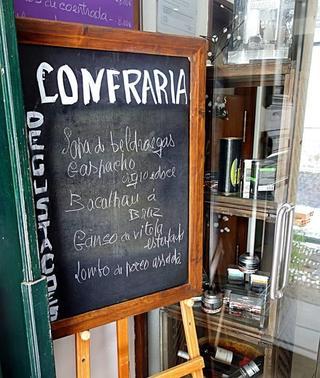 de coentrada
CONFRARIA
DEGUSTAÇÕES
Sopa de beldroegas
Gaspacho
agridoce
Bacalhau á
Braz
Ganso de vitela
estufado
Lombo de porco assado